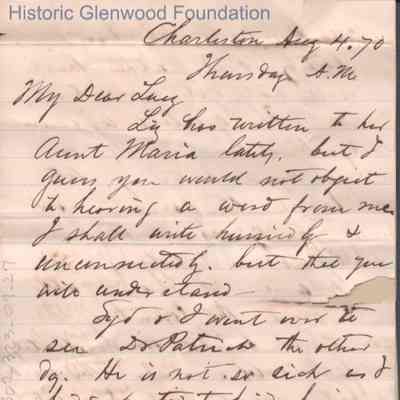 Historic Glenwood Foundation
Charleston Aug 4. 70
Thursday A.M
My Dear Lucy
Liz has written to her
Aunt Maria lately, but I
guess you would not object
to hearing a word from me
I shall write hurriedly &
unconnectedly. but that you
will understand
Syd & I went over to
see Dr Patrick the other
day. He is not so sick as I